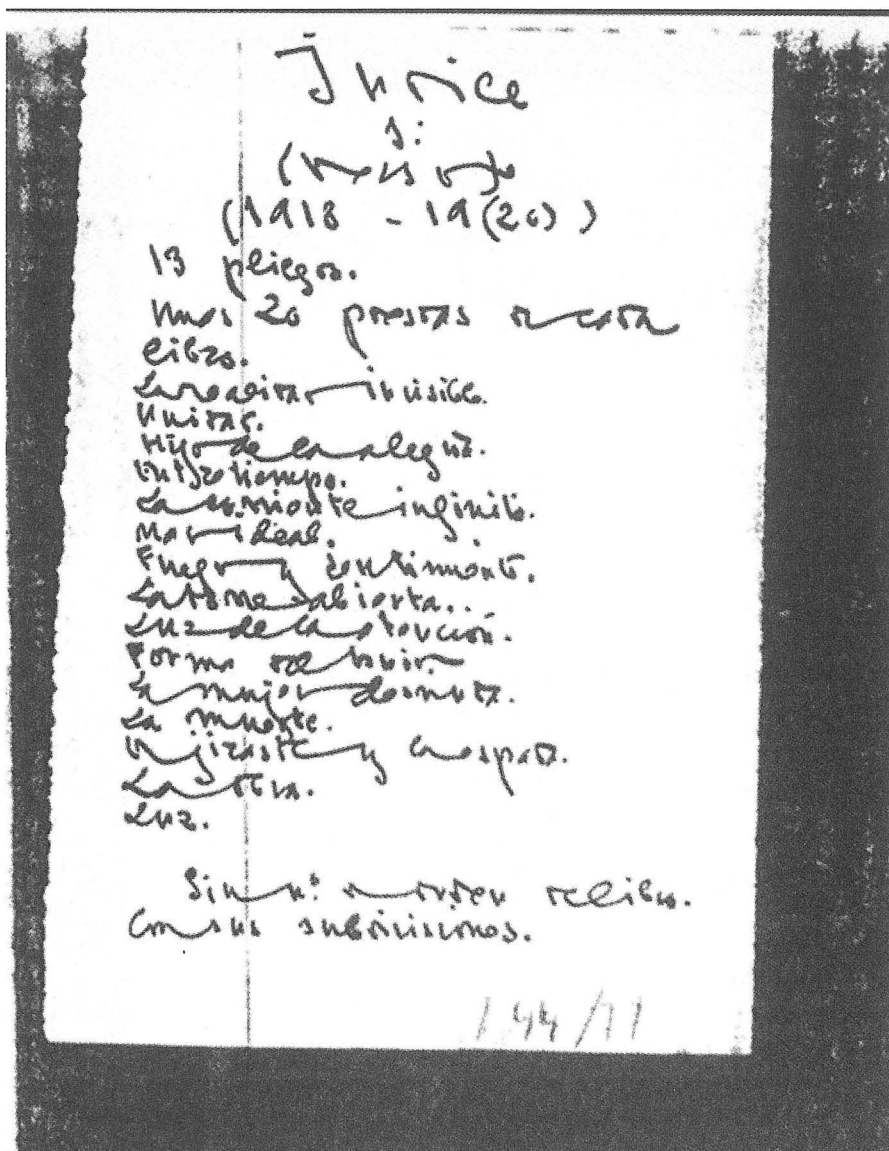 Índice
de:
(verso)
(1918 - 19(20))
13 pliegos.
Unas 20 poesías de cada
libro.
La realidad invisible.
Unidad.
Hijo de la alegría.
Entretiempo.
La corriente infinita.
Mar ideal.
Fuego y sentimiento.
La torre abierta..
Luz de la atención.
Forma del huir.
La mujer desnuda.
La muerte.
El jiraste y la espada.
La obra.
Luz.
Sin nº de orden de libro.
Con sus subdivisiones.
144/11